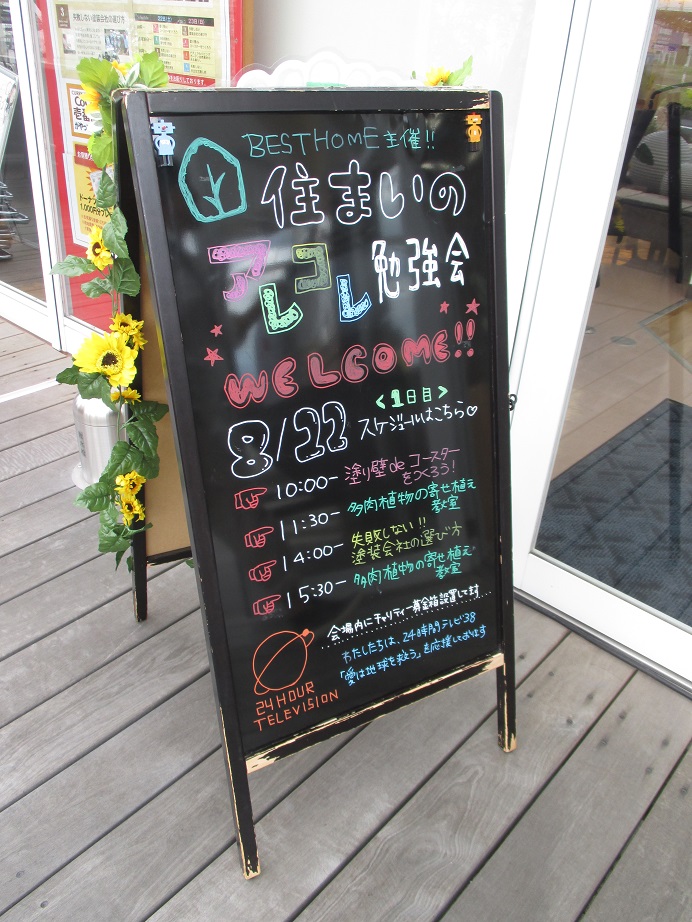 BEST HOME主催!!
住まいの
アレコレ勉強会
WELCOME!!
8/22
<1日目>
スケジュールはこちら♡
10:00- 塗り壁deコースター
をつくろう!
11:30- 多肉植物の寄せ植え
教室
14:00- 失敗しない!!
塗装会社の選び方
15:30- 多肉植物の寄せ植え
教室
会場内にチャリティー募金箱設置してます
わたしたちは、24時間テレビ38
「愛は地球を救う」を応援しております
24 HOUR
TELEVISION